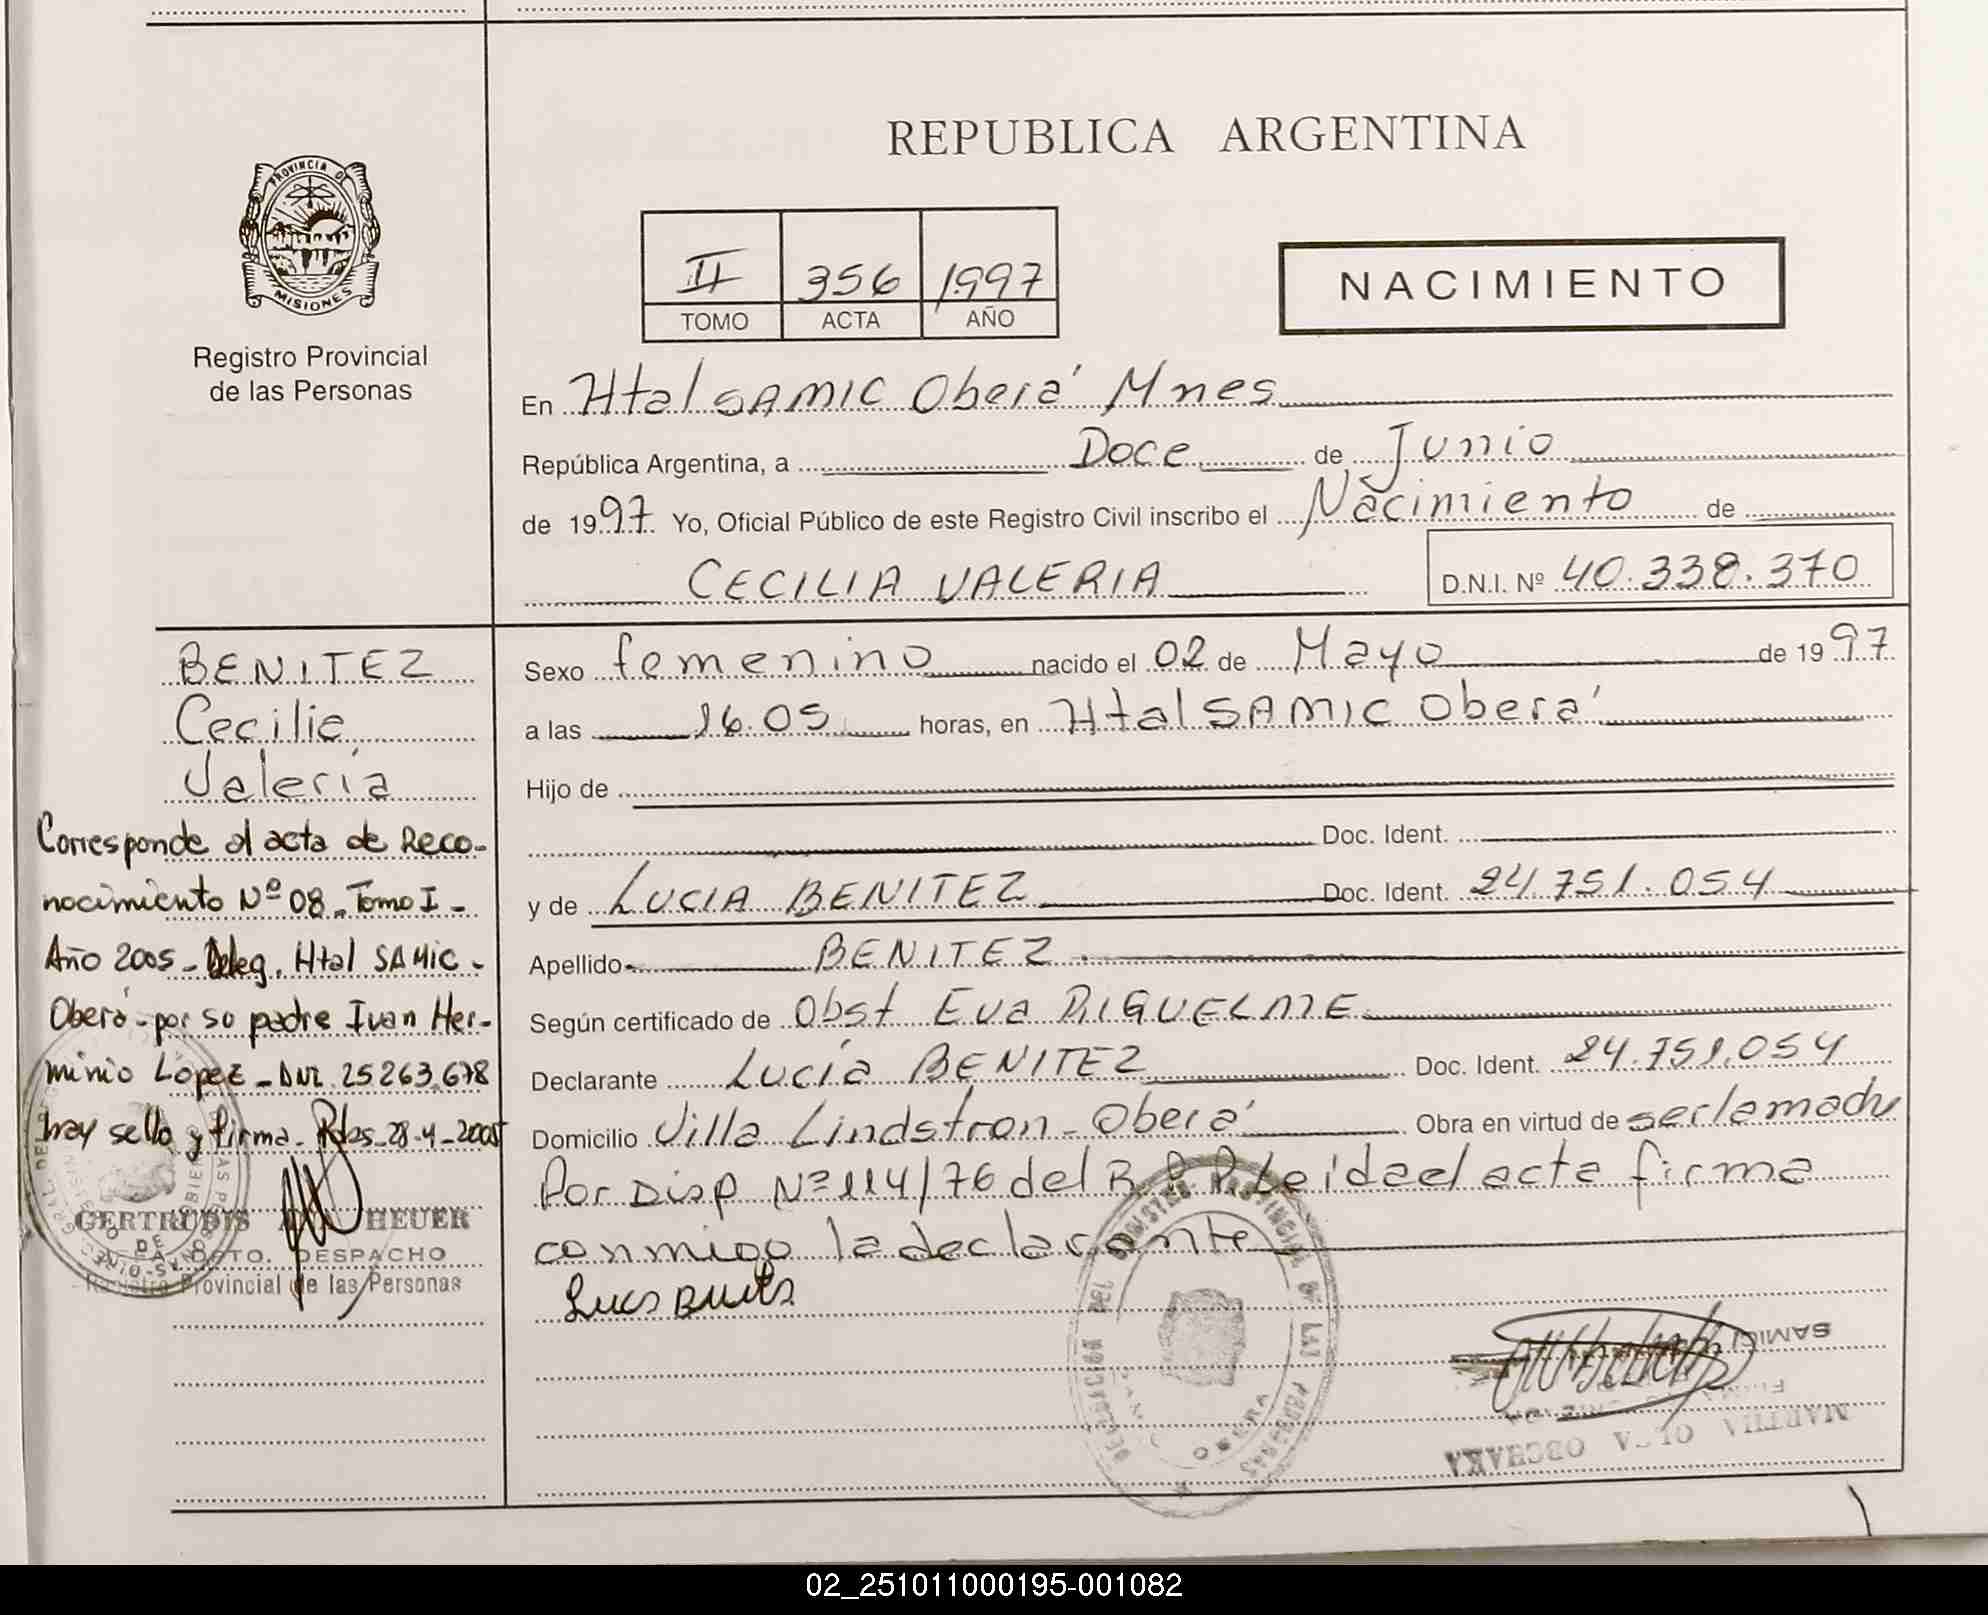 REPUBLICA ARGENTINA
PROVINCIA DE
MISIONES
Registro Provincial
de las Personas
II 356 1997
TOMO ACTA AÑO
NACIMIENTO
En Htal SAMIC Oberá Mnes
República Argentina, a Doce de Junio
de 1997 Yo, Oficial Público de este Registro Civil inscribo el Nacimiento de
CECILIA VALERIA D.N.I. Nº 40.338.370
BENITEZ
Cecilia
Valeria
Corresponde al acta de Reco-
nocimiento Nº 08_Tomo I_
Año 2005_Deleg. Htal SAMIC_
Oberá-por so padre Ivan Her-
minio Lopez_DNI.25263.678
hay sello y firma_Pdas_28-4-2005
GERTRUDIS HEUER
DPTO. DESPACHO
Registro Provincial de las Personas
Sexo femenino nacido el 02 de Mayo de 1997
a las 16.05 horas, en Htal SAMIC Oberá
Hijo de
Doc. Ident.
y de LUCIA BENITEZ Doc. Ident. 24.751.054
Apellido BENITEZ
Según certificado de Obst Eva RIQUELME
Declarante Lucía BENITEZ Doc. Ident. 24.751.054
Domicilio Villa Lindstron_Oberá Obra en virtud de ser la madre
Por Disp Nº 114/76 del R.P.P. Leida el acta firma
conmigo la declarante
OBERA
SAMIC
MARTHA OLGA OBCHAKA
02_251011000195-001082